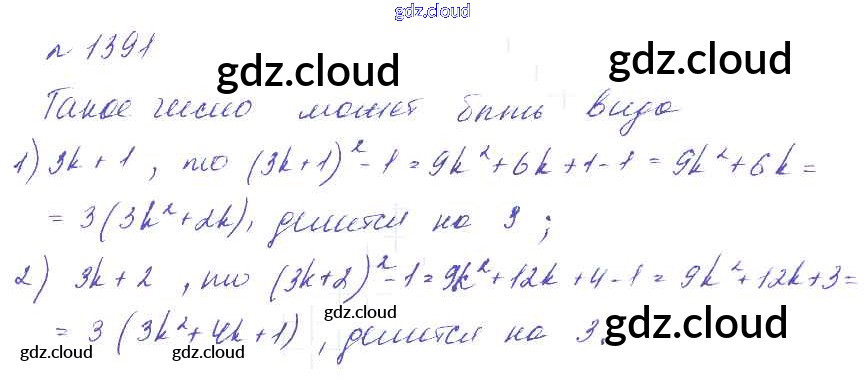 gdz.cloud
№ 1391
gdz.cloud gdz.cloud
Такое число может быть вида
1) 3k + 1, то (3k+1)² - 1 = 9k² + 6k + 1 - 1 = 9k² + 6k =
= 3(3k² + 2k), делится на 3;
2) 3k + 2, то (3k+2)² - 1 = 9k² + 12k + 4 - 1 = 9k² + 12k + 3 =
gdz.cloud gdz.cloud
= 3(3k² + 4k + 1), делится на 3.
gdz.cloud gdz.cloud gdz.cloud